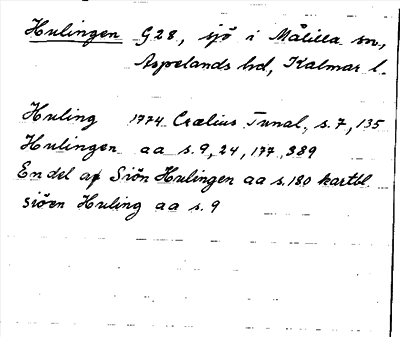 Hulingen G28, sjö i Målilla sn,
Aspelands hd, Kalmar l.
Huling 1774 Crælius Tunal., s. 7, 135
Hulingen aa s. 9, 24, 177, 389
En del af Siön Hulingen aa s. 180 kartbl.
siöen Huling aa s. 9